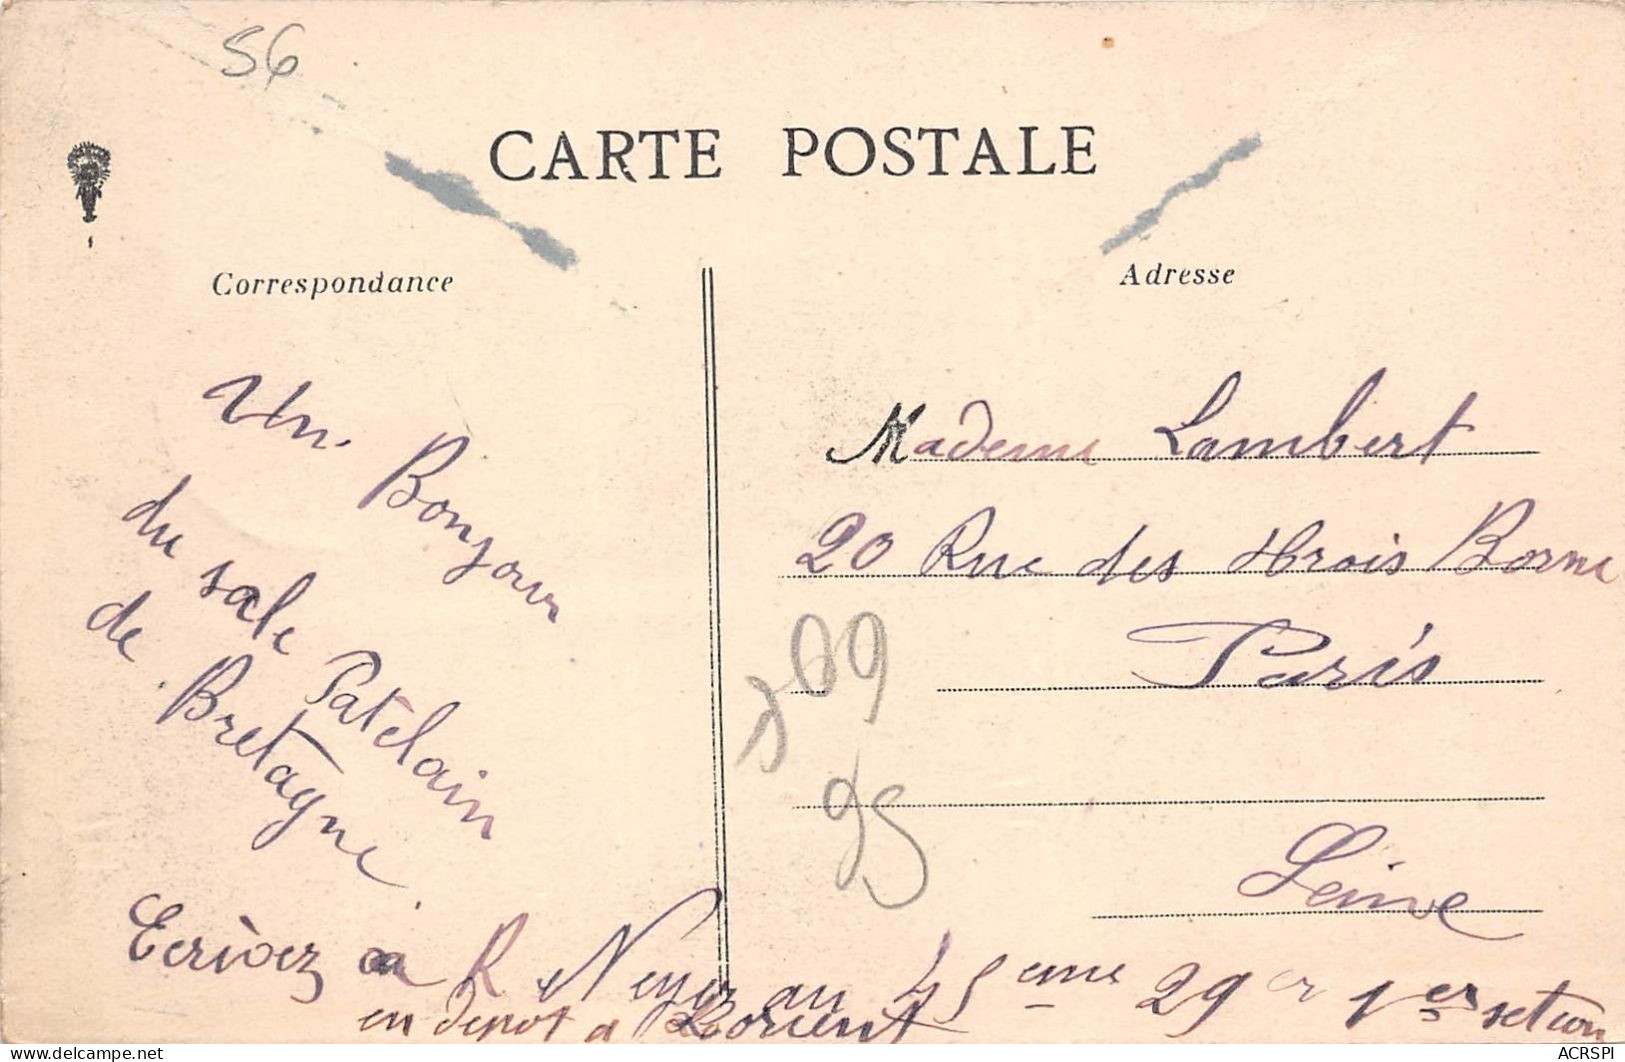 56
CARTE POSTALE
Correspondance
Adresse
Un Bonjour
du sale Patelain
de Bretagne
Ecrivez a R Neyer au 45eme 29er 1er setion
en depot a Lorient
Madame Lambert
20 Rue des trois Borne
Paris
Seine
69
95
delcampe.net
ACRSPI